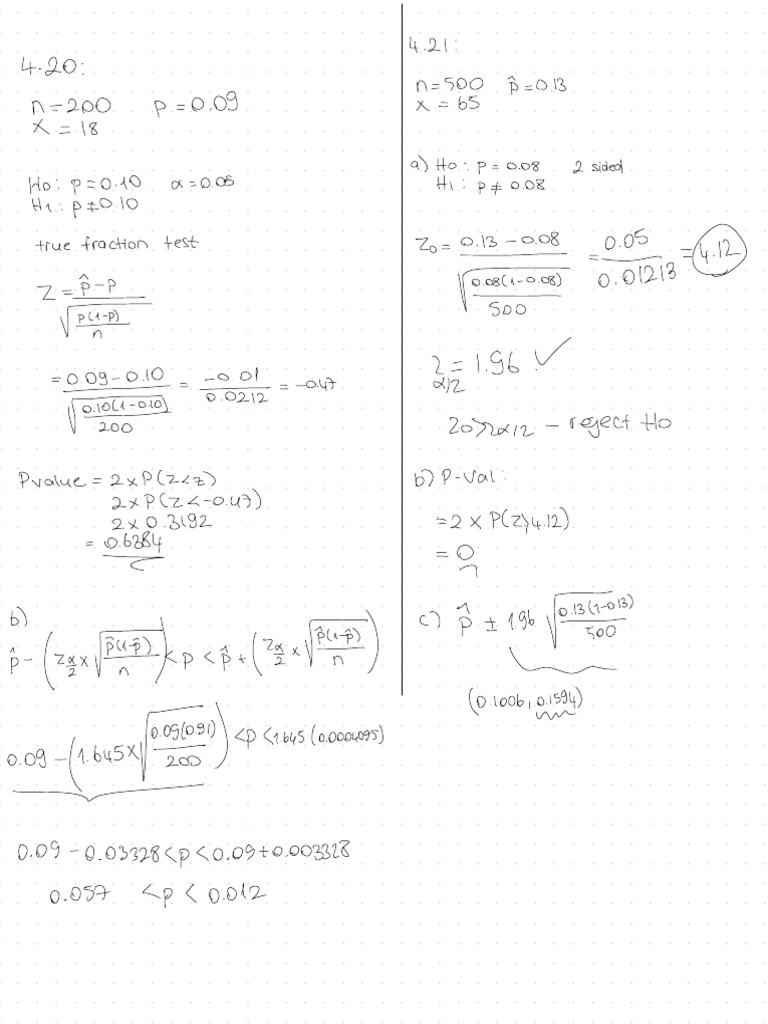 4.20:
n=200 p=0.09
x=18
Ho: p=0.10 α=0.05
H1: p≠0.10
true fraction test
Z = p̂-p / √(p(1-p)/n)
= 0.09-0.10 / √(0.10(1-0.10)/200) = -0.01/0.0212 = -0.47
Pvalue = 2xP(Z<z)
2xP(Z<-0.47)
2x0.3192
= 0.6384
b)
p̂ - (Zα/2 x √(p̂(1-p̂)/n)) < p < p̂ + (Zα/2 x √(p̂(1-p̂)/n))
0.09 - (1.645x√(0.09(0.91)/200)) <p<1.645(0.0004095)
0.09-0.03328<p<0.09+0.003328
0.057 <p< 0.012
4.21:
n=500 p̂=0.13
x=65
a) Ho: p=0.08 2 sided
H1: p≠0.08
Zo = 0.13-0.08 / √(0.08(1-0.08)/500) = 0.05/0.01213 = 4.12
Zα/2 = 1.96 ✓
Zo>Zα/2 - reject Ho
b) P-Val:
=2 x P(Z>4.12)
= 0
c) p̂ ± 196 √(0.13(1-0.13)/500)
(0.1006, 0.1594)